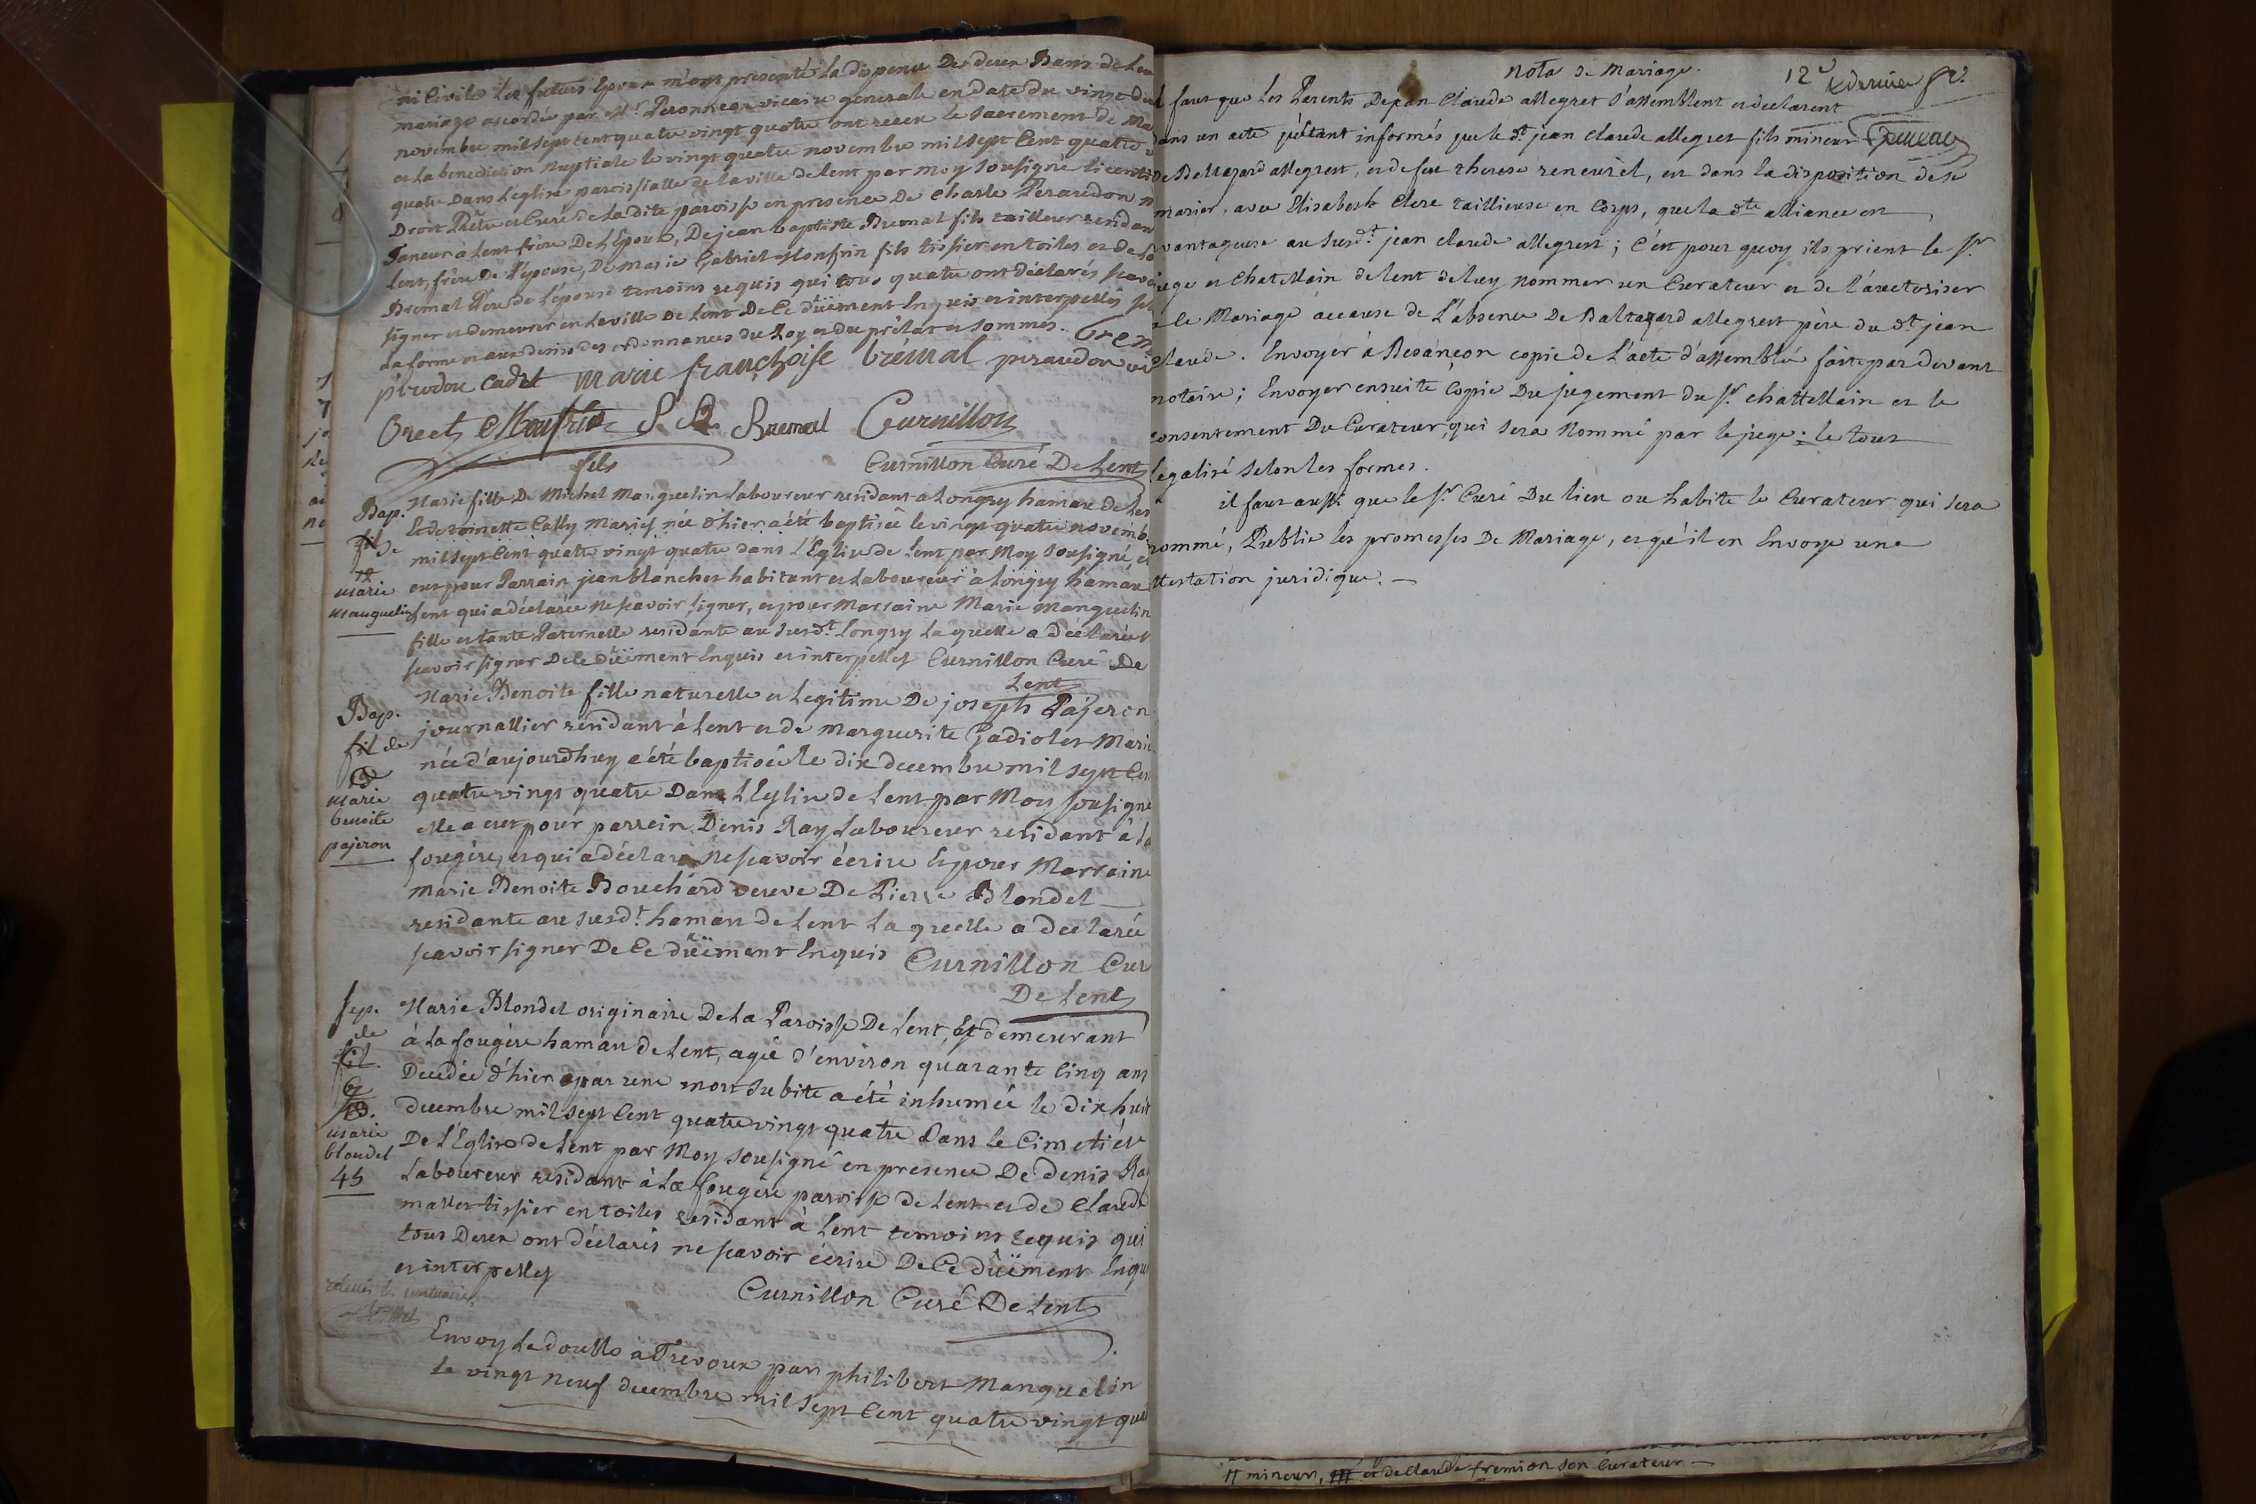 ni Civile Les futurs Epoux m'ont presenté La dispense De deux Bans de Leur
mariage accordée par Mr. Peronneau vicaire general en date du vingt deux
novembre mil sept cent quatre vingt quatre ont receu Le Sacrement de Ma
et La benediction nuptiale le vingt quatre novembre mil sept Cent quatre v
quatre Dans L'église paroissialle de la ville de Lent par moy sousigné licentié
Droit Prêtre et Curé de La dite paroisse en presence De Charle Peraudon
Taneur à Lent frère De L'Epoux, De jean baptiste Bremal fils tailleur residan
Lent, frère De L'épouse, De Marie Gabriel Monfrin fils tissier en toiles et de
Bremal Père de L'épouse temoins requis qui tous quatre ont déclarés scavoi
signer et demeurer en la ville De Lent De Ce düement Enquis et interpellés
La forme ordonnances du Roy et du prélat et sommes.
pérodon Cadet marie françhoise brémal peraudon
Monfrin J. B. Bremal Curnillon
fils
Curnillon Curé De Lent
Bap.
fil de
marie
mauguelin
Marie fille De Michel Manguelin Laboureur residant a Longry hamau de Len
et de toinette Cally Mariés née d'hier a été baptisée le vingt quatre novemb
mil sept Cent quatre vingt quatre dans L'Eglise de Lent par Moy sousigné, e
eut pour Parrain jean blanchet habitant et Laboureur à Longry hamau
Lent qui a déclaré ne scavoir signer, et pour Marraine Marie Manguelin
fille et tante Paternelle residante au susdt. Longry La quelle a déclaré
scavoir signer De Ce düement Enquis et interpelles Curnillon Curé De
Lent
Bap.
fil de
marie
benoite
pajeron
Marie Benoite fille naturelle et Legitime De joseph Pajeron
journallier residant à Lent et de Marguerite Gadiolet Marié
née d'aujourdhuy a été baptisée le dix decembre mil sept Cen
quatre vingt quatre Dans L'Eglise de Lent par Moy sousigné
elle a eu pour parrein Denis Ray Laboureur residant à la
fougère, et qui a déclaré ne scavoir écrire Et pour Marraine
Marie Benoite Bouchard veuve De Pierre Blondel
residante au susdt. hamau de Lent La quelle a declarée
scavoir signer De Ce düement Enquis Curnillon Cur
De Lent
sep.
de
fil.
marie
blondel
45
Marie Blondel originaire De La Paroisse De Lent, Et demeurant
à La fougère hamau de Lent, agée d'environ quarante Cinq ans
Decedée d'hier par une mort subite a été inhumée le dix huit
decembre mil sept Cent quatre vingt quatre Dans le Cimetiére
De L'Eglise de Lent par Moy sousigné en presence De denis Ray
Laboureur residant à La fougère paroisse de Lent et de Claude
mallet tissier en toiles residant à Lent temoins requis qui
tous Deux ont déclarés ne scavoir écrire De Ce düement Enqu
et interpelles
Curnillon Curé De Lent
Envoy Le double à Trevoux par philibert Manguelin
Le vingt neuf decembre mil sept Cent quatre vingt qua
nota de Mariage.
12e
& dernier
faut que Les Parents De jean Claude allegret s'assemblent et declarent
dans un acte qu'étant informés que le dt. jean Claude allegret fils mineur
De Baltazard allegret, et de feue therese reneuriel, est dans la disposition de se
marier, avec Elisabeth Clerc taillieuse en Corps, que la dte alliance est
vantageuse au susdt. jean claude allegret; C'est pour quoy ils prient le Sr.
juge et Chatellain de Lent de luy nommer un Curateur et de L'auctoriser
le Mariage àcause de L'absence De Baltazard allegret père du dt. jean
claude. Envoyer à Besançon copie de L'acte d'assemblée faite par devant
notaire; Envoyer ensuite Copie Du jugement du Sr. chattellain et le
consentement Du Curateur, qui sera Nommé par le juge: le tout
legalisé selon les formes.
il faut aussi que le Sr. Curé Du lieu ou habite le Curateur qui sera
nommé, Publie les promesses De Mariage, et qu'il en Envoye une
ttestation juridique.
mineur, et de Claude fremion son Curateur